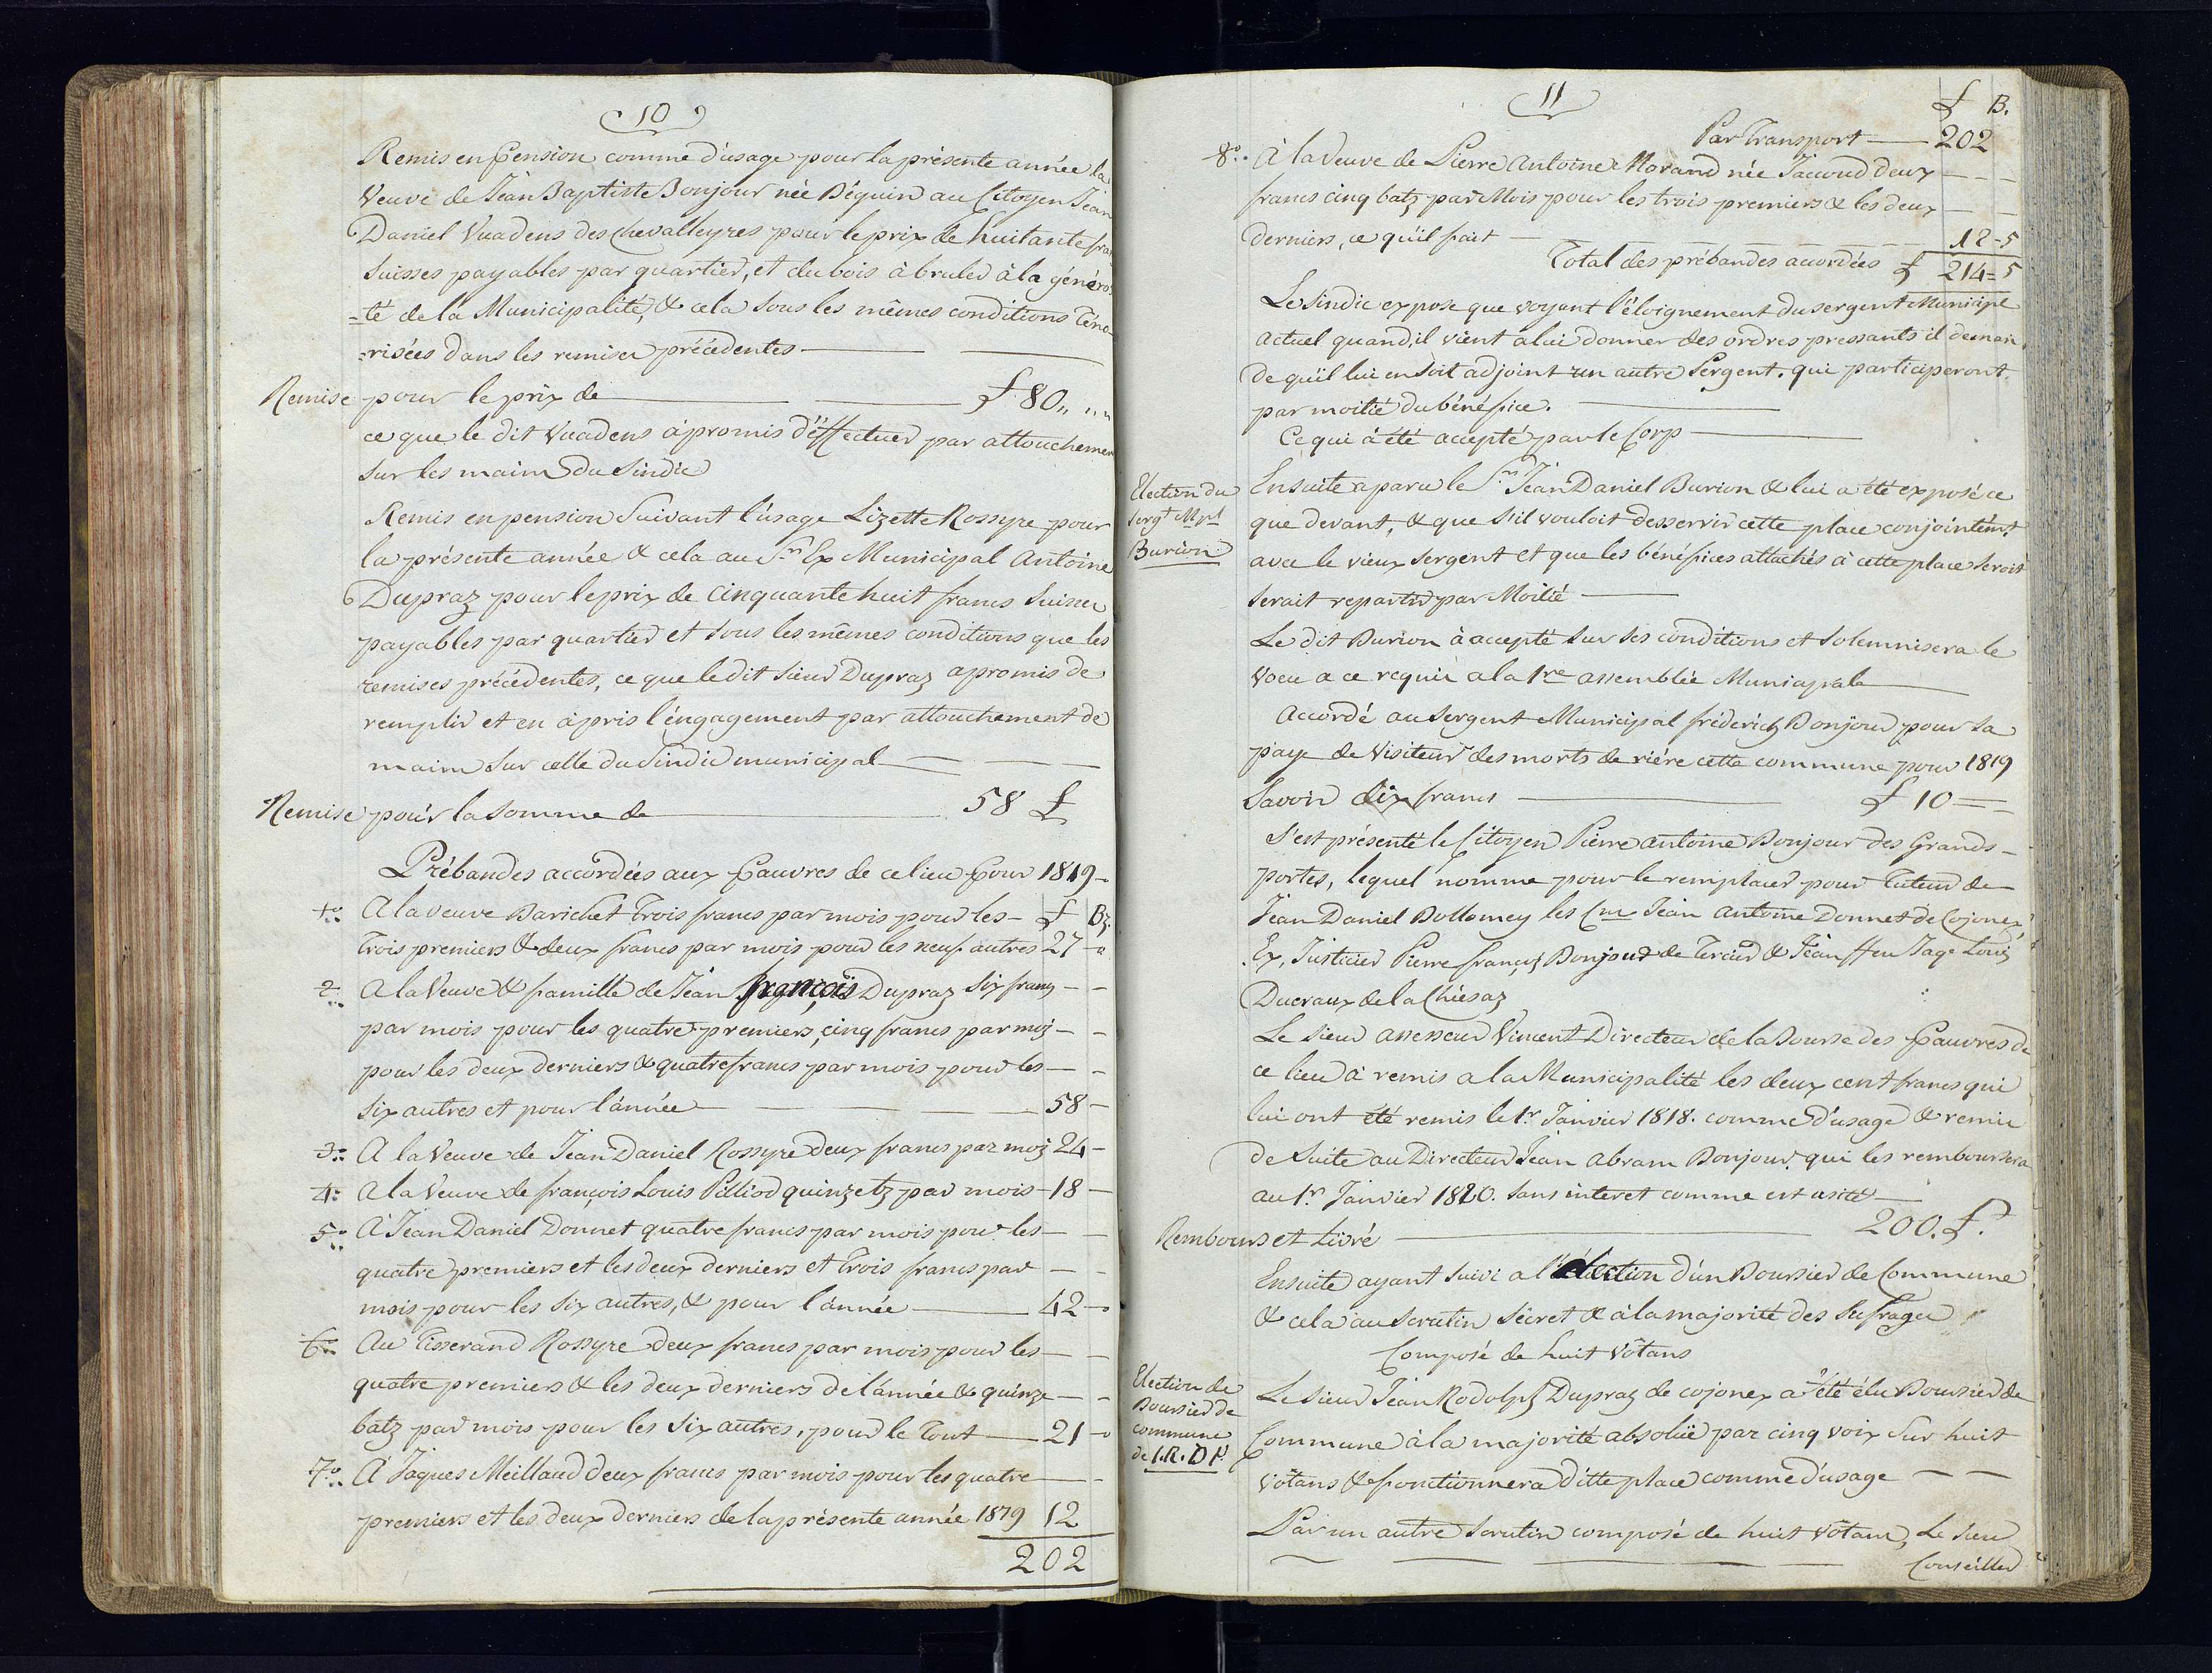 10
Remis en Pension comme d'usage pour la présente année la
Veuve de Jean Baptiste Bonjour née Béguin au Citoyen Jean
Daniel Vuadens des Chevalleyres pour le prix de huitante fra
Suisses payables par quartier, et du bois à bruler à la généro
-té de la Municipalité, & cela sous les mêmes conditions Téno
-risées dans les remises précédentes
Remise pour le prix de £ 80 „ „ „
ce que le dit Vuadens à promis d'éffectuer par attouchemen
sur les mains du Sindic
Remis en pension Suivant l'usage Lizette Rossyre pour
la présente année & cela au Sr. Ex Municipal Antoine
Dupraz pour le prix de Cinquante huit francs Suisses
payables par quartier et sous les mêmes conditions que les
remises précédentes, ce que le dit Sieur Dupraz a promis de
remplir et en à pris l'éngagement par attouchement de
mains sur celle du Sindic municipal
Remise pour la somme de 58 £
Prébandes accordées aux Pauvres de ce lieu Pour 1819
1o. A la veuve Barichet Trois francs par mois pour les £ Bz.
Trois premiers & deux francs par mois pour les neuf autres 27
2. A la Veuve & famille de Jean françois Dupraz Six francs
par mois pour les quatre premiers, cinq francs par moiz
pour les deux derniers & quatre francs par mois pour les
six autres et pour l'année 58
3o. A la Veuve de Jean Daniel Rossyre deux francs par moiz 24
4. A la Veuve de françois Louis Pilliod quinz etz par mois 18
5o. À Jean Daniel Donnet quatre francs par mois pour les
quatre premiers et les deux derniers et Trois francs par
mois pour les six autres, & pour l'année 42
6o. Au Tisserand Rossyre deux francs par mois pour les
quatre premiers & les deux derniers de l'année & quinze
batz par mois pour les six autres, pour le Tout 21
7o. À Jaques Meilland deux francs par mois pour les quatre
premiers et les deux derniers de la présente année 1819 12
202
11
£ B.
Par Transport 202
8o. À la Veuve de Pierre Antoine Morand née Jaccoud deux
francs cinq batz par Mois pour les trois premiers & les deux
derniers, ce qu'il fait 12-5
Total des prébandes accordées £ 214=5
Le Sindic expose que voyant l'éloignement du sergent Municipl
actuel quand, il vient a lui donner des ordres pressants il deman
de qu'il lui en soit adjoint un autre Sergent. qui participeront
par moitié du bénéfice.
Ce qui à été accepté par le Corp
Election du
Sergt Mpl
Burion
Ensuite a paru le Sr. Jean Daniel Burion & lui a été exposé ce
que devant, & que s'il vouloit desservir cette place conjointemt.
avec le vieux Sergent et que les bénéfices attachés à cette place seroit
serait repartir par Moitié
Le dit Burion à accepté sur ses conditions et solemnisera le
Voeu a ce requis a la 1re assemblée Municipale
Accordé au Sergent Municipal fréderich Bonjour pour sa
paye de Visiteur des morts de riére cette commune pour 1819
Savoir dix francs £ 10
S'est présenté le Citoyen Pierre antoine Bonjour des Grands-
portes, lequel nomme pour le remplacer pour Tuteur de
Jean Daniel Dollomey les Cns Jean Antoine Donnet de Cojonex,
Ex, Justicier Pierre françs Bonjour de Tercier & Jean ffeu Jage Louis
Ducraux de la Chiésaz
Le Sieur assesseur Vincent Directeur de la Bourse des Pauvres de
ce lieu à remis a la Municipalité les deux cent francs qui
lui ont été remis le 1r. Janvier 1818. comme d'usage & remis
de suite au Directeur Jean Abram Bonjour. qui les remboursera
au 1r. Janvier 1820. sans interet comme est usité
Rembours et Livré 200. £.
Ensuite ayant suivi a l'élection d'un Boursier de Commune
& cela au Scrutin Sécret & à la majorité des Sufrages
Composé de huit Vôtans
Election de
Boursier de
commune
de J.R. DP.
Le sieur Jean Rodolph Dupraz de cojonex a été élu Boursier de
Commune à la majorité absolüe par cinq voix sur huit
vôtans & fonctionnera ditte place comme d'usage
Par un autre scrutin composé de huit vôtans, Le Sieur
Conseiller